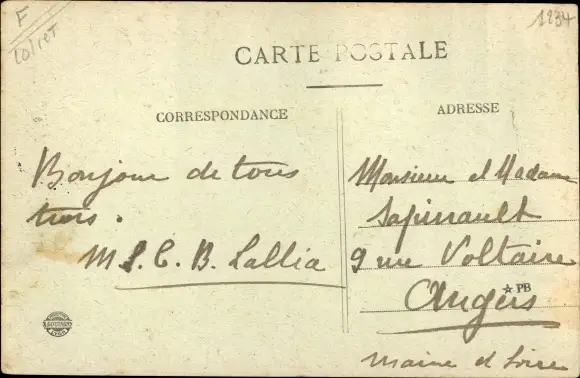 F
Loiret
1234
CARTE POSTALE
CORRESPONDANCE
ADRESSE
Bonjour de tous
trois.
M L. C. B. Lallia
Monsieur et Madame
Sapinault
9 rue Voltaire
Angers
☆ PB
Maine et Loire